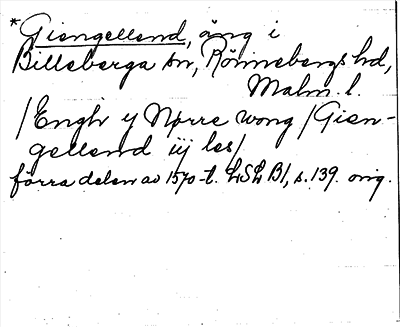 *Giengellend, äng i
Billeberga sn, Rönnebergs hd,
Malm. l.
/Engh y Nørre wong /Gien-
gellend iij les/
förra delen av 1570-t. LSL B1, s. 139. orig.